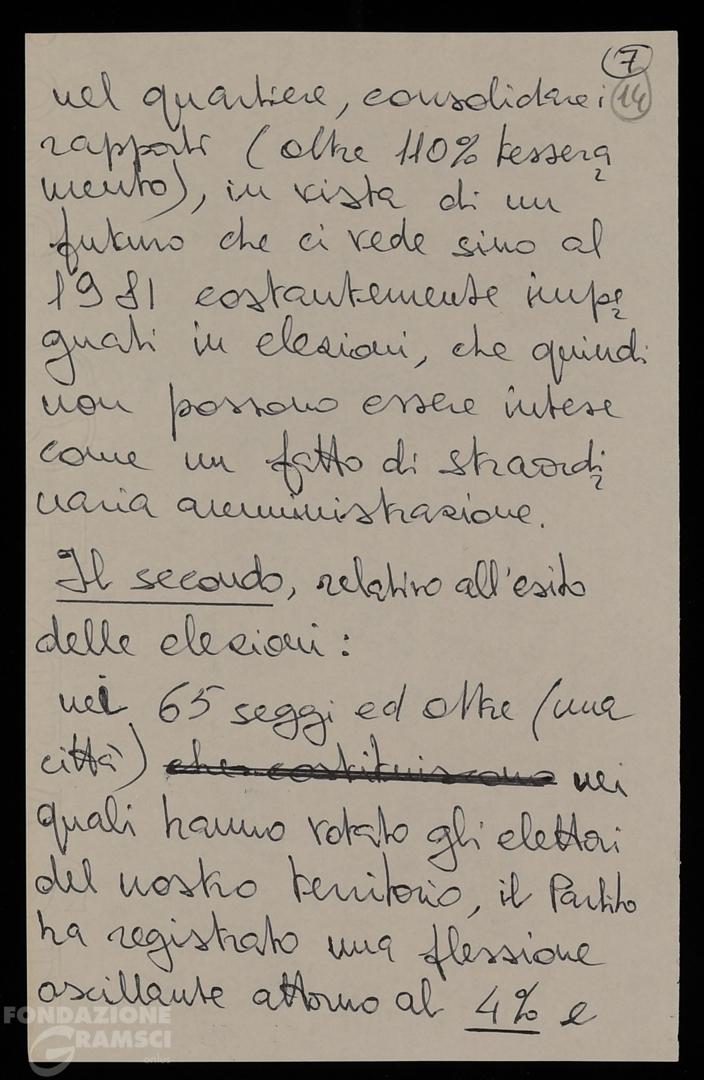 7
14
nel quartiere, consolidare i
rapporti (oltre 110% tessera
mento), in vista di un
futuro che ci vede sino al
1981 costantemente impe
gnati in elezioni, che quindi
non possono essere intese
come un fatto di straordi
naria amministrazione.
Il secondo, relativo all'esito
delle elezioni:
nei 65 seggi ed oltre (una
città) che costituiscono nei
quali hanno votato gli elettori
del nostro territorio, il Partito
ha registrato una flessione
oscillante attorno al 4% e
FONDAZIONE
GRAMSCI
onlus